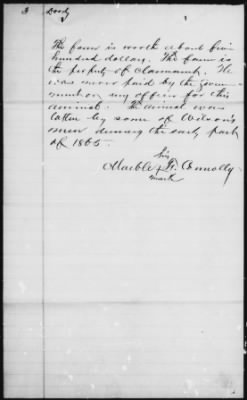 3 Doody
The farm is worth about five
hundred dollars. The farm is
the property of Claimant. He
was never paid by the govern-
ment or any officer for this
animal. The animal was
taken by some of Wilson's
men during the early part
of 1865.
his
Marble H. Connolly
mark